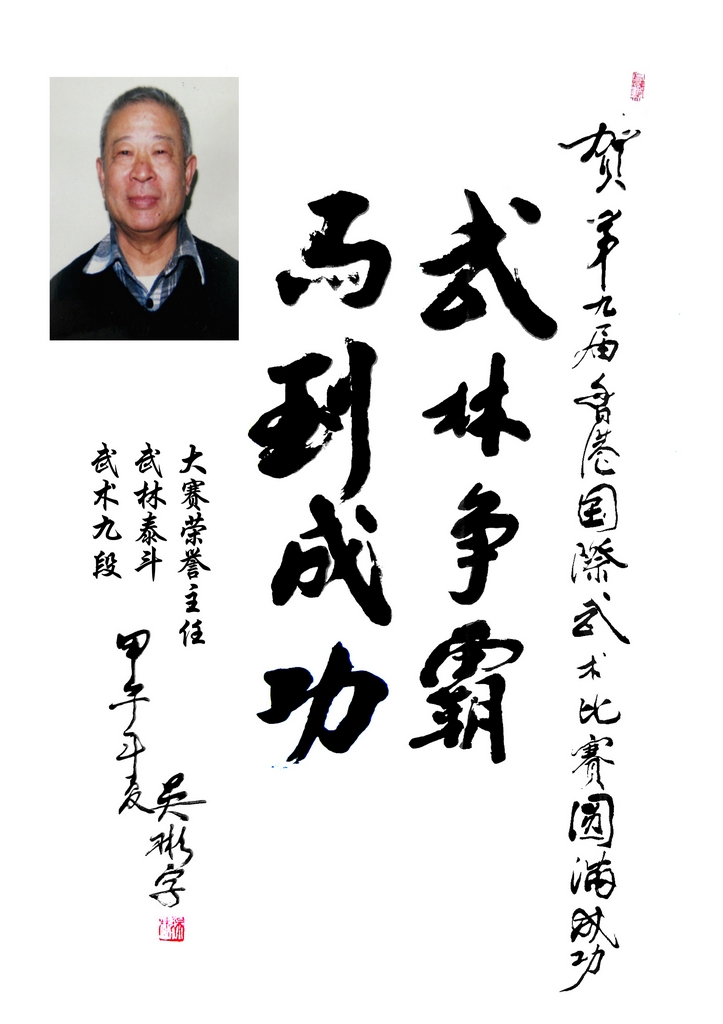 贺第九届香港国際武术比賽圆满成功
武林争霸
马到成功
大赛荣誉主任
武林泰斗
武术九段
甲午年夏
吴彬字